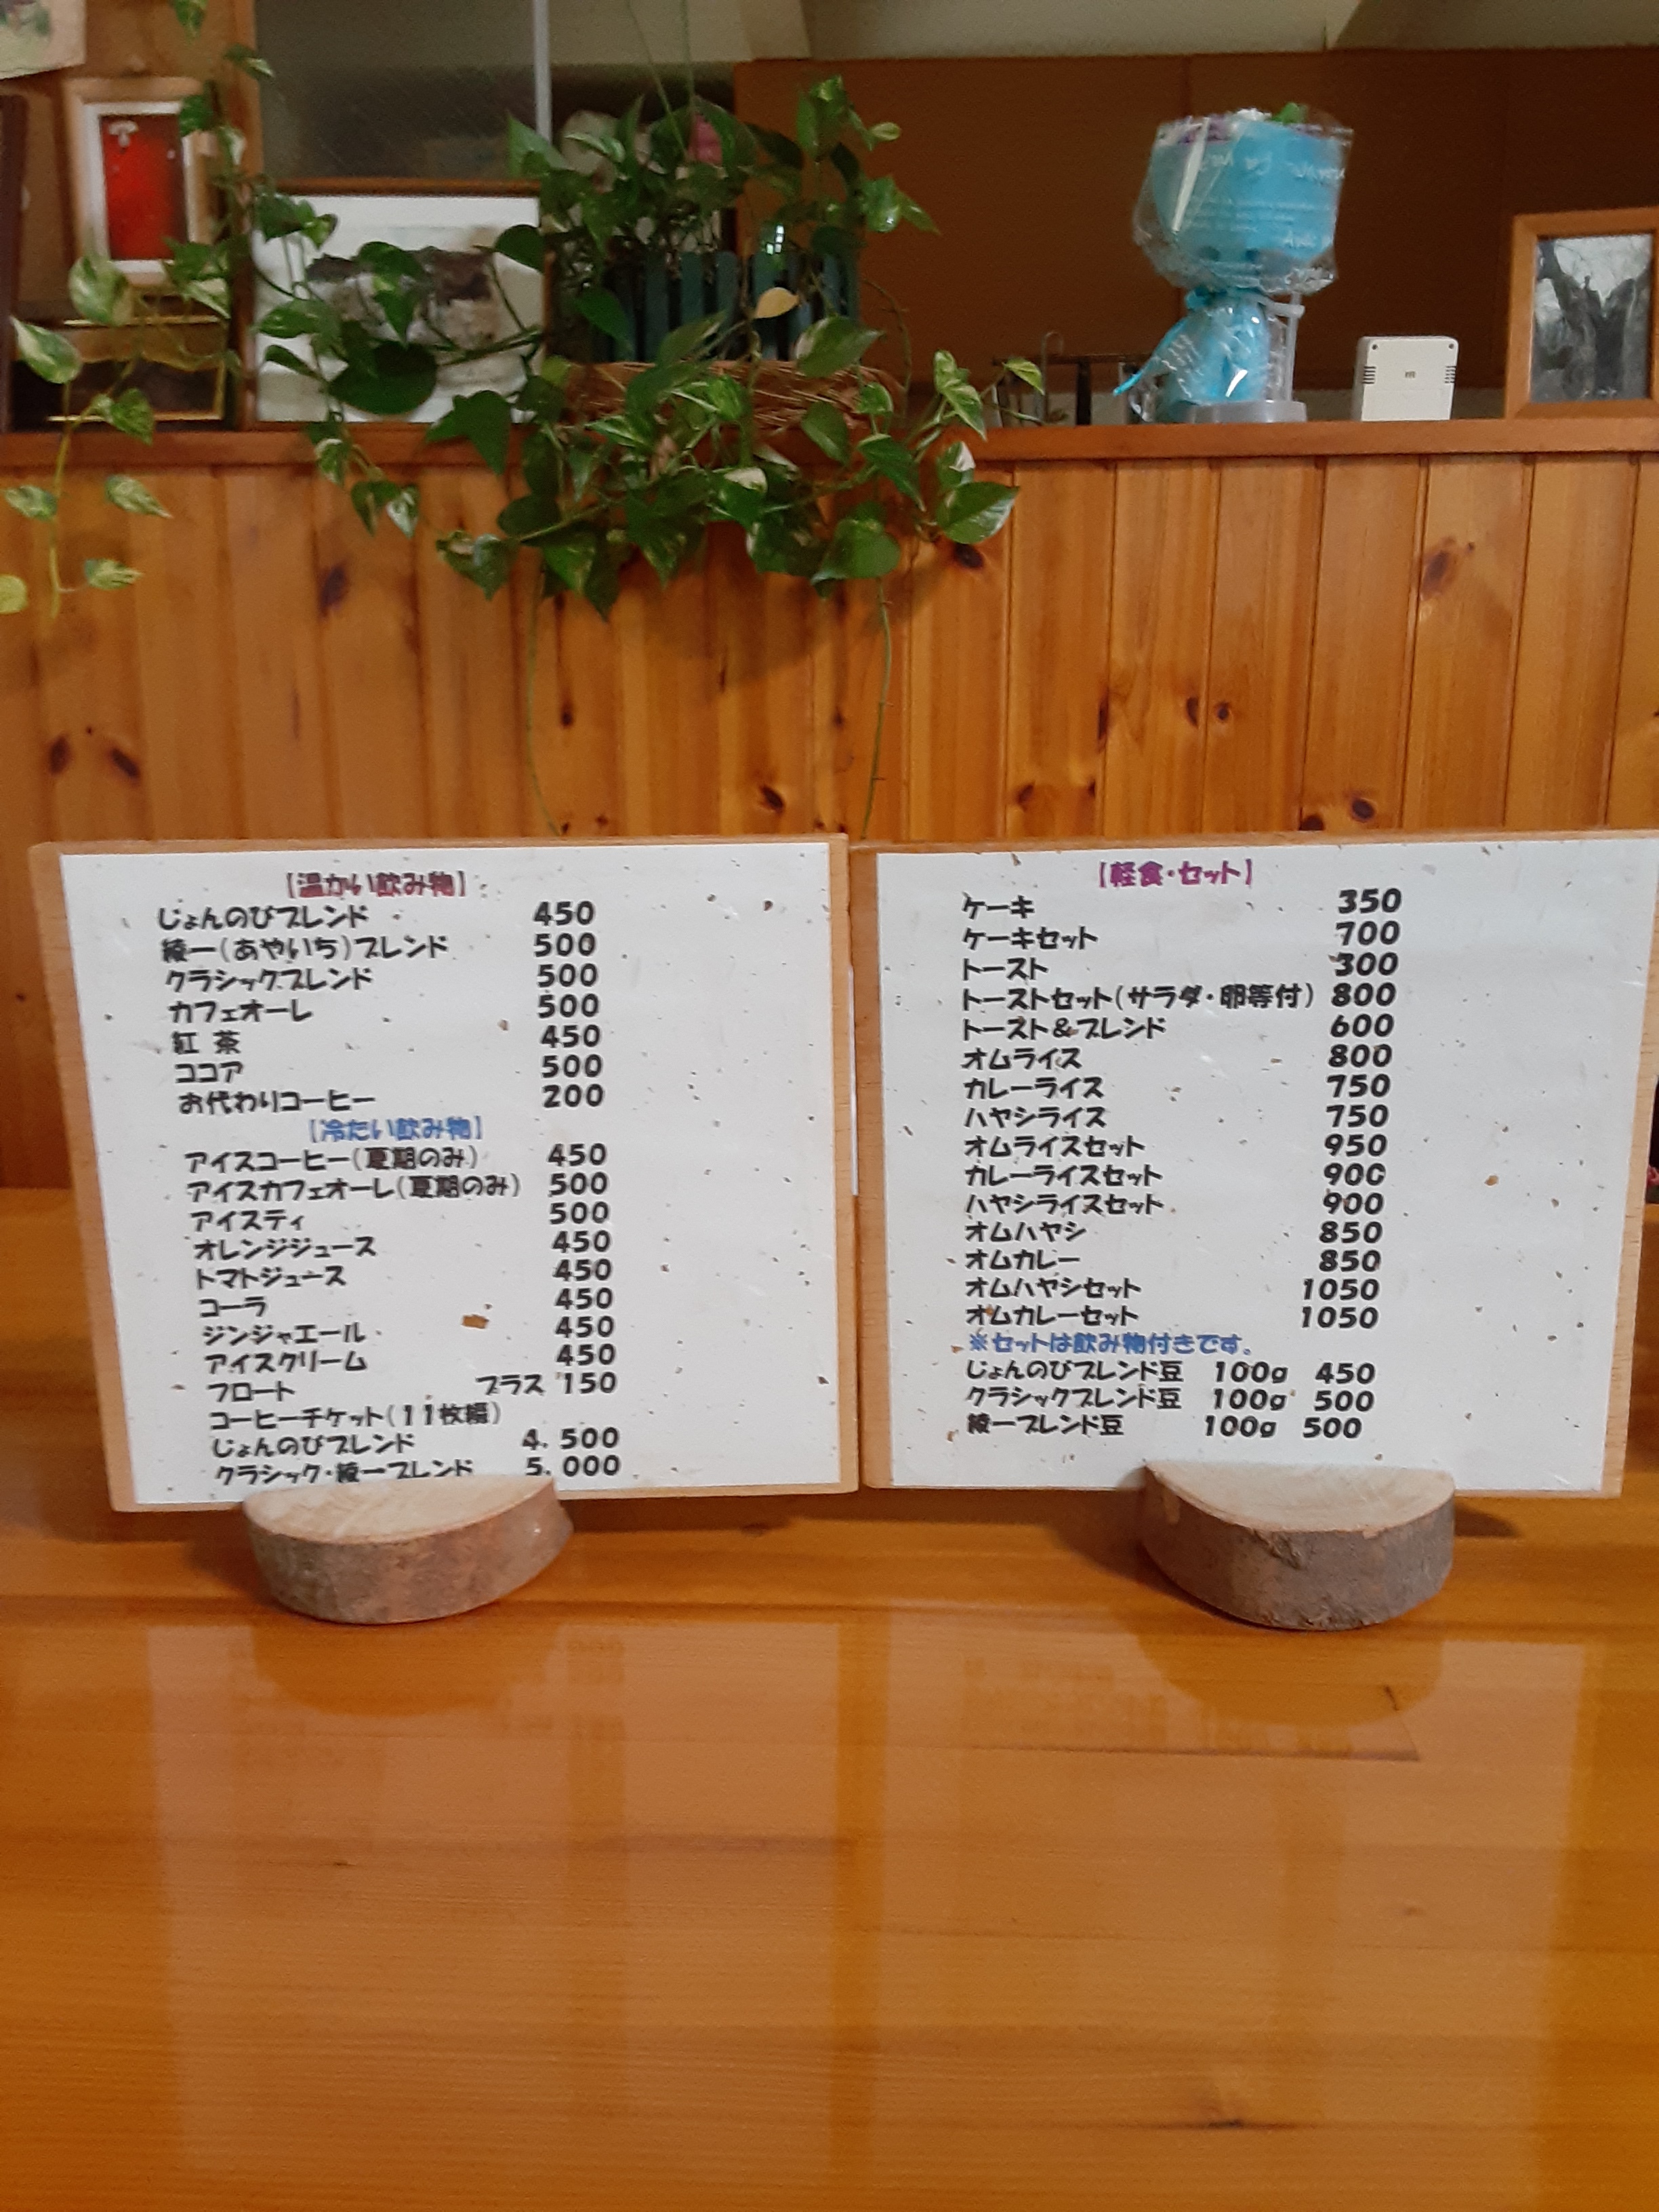 【温かい飲み物】
じょんのびブレンド 450
綾一(あやいち)ブレンド 500
クラシックブレンド 500
カフェオーレ 500
紅 茶 450
ココア 500
お代わりコーヒー 200
【冷たい飲み物】
アイスコーヒー(夏期のみ) 450
アイスカフェオーレ(夏期のみ) 500
アイスティ 500
オレンジジュース 450
トマトジュース 450
コーラ 450
ジンジャエール 450
アイスクリーム 450
フロート プラス 150
コーヒーチケット(11枚綴)
じょんのびブレンド 4.500
クラシック・綾一ブレンド 5.000
【軽食・セット】
ケーキ 350
ケーキセット 700
トースト 300
トーストセット(サラダ・卵等付) 800
トースト&ブレンド 600
オムライス 800
カレーライス 750
ハヤシライス 750
オムライスセット 950
カレーライスセット 900
ハヤシライスセット 900
オムハヤシ 850
オムカレー 850
オムハヤシセット 1050
オムカレーセット 1050
※セットは飲み物付きです。
じょんのびブレンド豆 100g 450
クラシックブレンド豆 100g 500
綾一ブレンド豆 100g 500